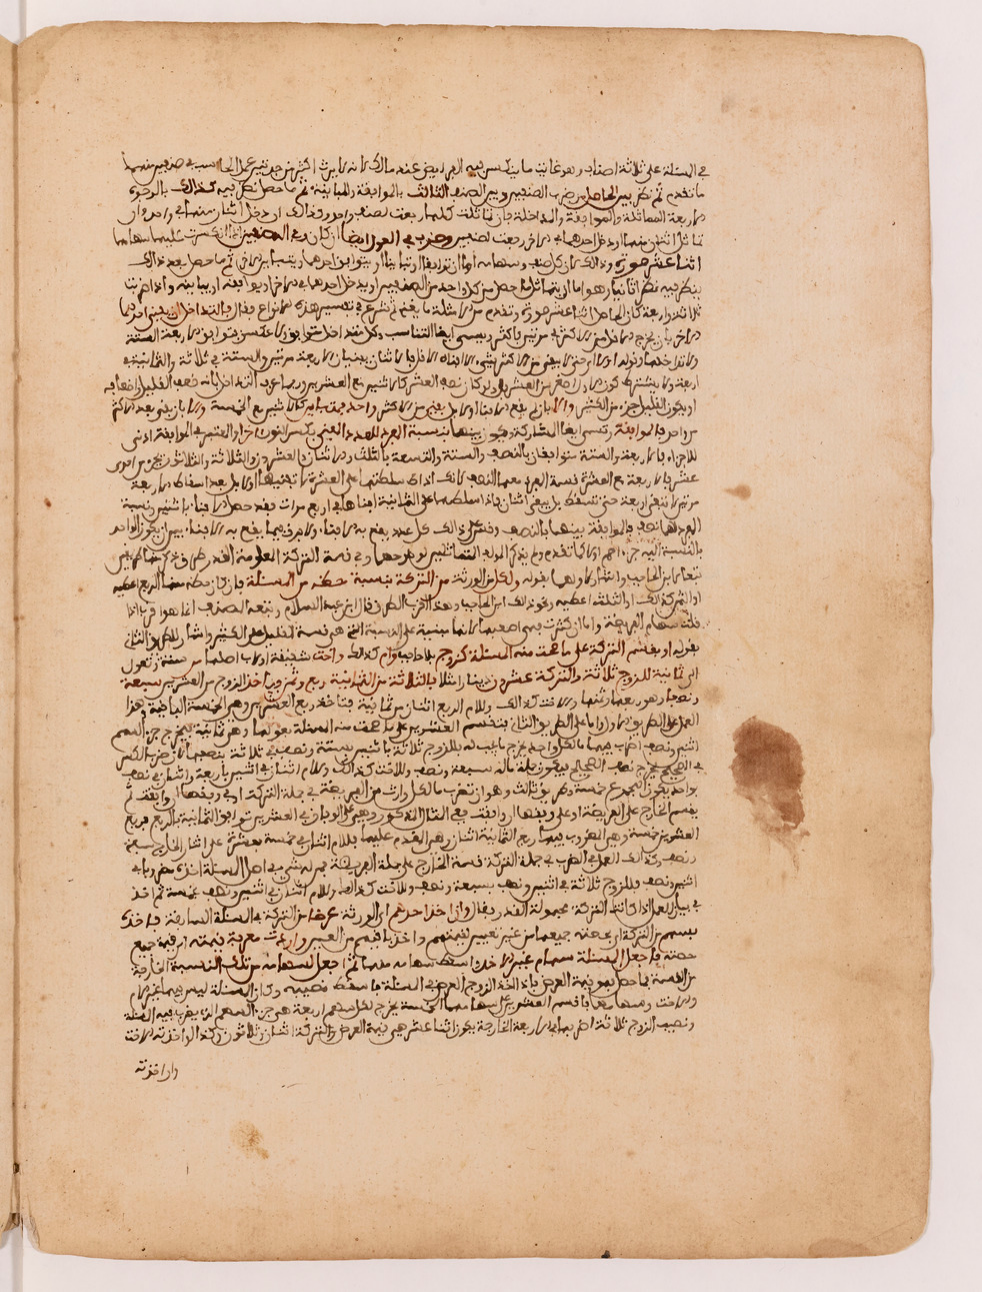 في المسئلة على ثلاثة اصناف وهو غاية ما ينكسر فيه الفرايض عند مالك لانه لا يرث اكثر من جدتين عمل الحاسب في صنفين منها
ما تقدم ثم نظر بين الحاصل من ضرب الصنفين وبين الصنف الثالث بالموافقة والمباينة ثم ما حصل نظر فيه كذلك بالوجوه
الاربعة المماثلة والموافقة والمداخلة فان تماثلت كلها رجعت لصنف واحد وكذلك ان دخل اثنان منها في واحد وان
تماثل اثنان منها او دخل احدهما في الاخر رجعت لصنفين وضرب في العول ايضا ان كان وفي الصنفين اللذين انكسرت عليهما سهامهما
اثنا عشر صورة وذلك لان كل صنف وسهامه اما ان يتوافقا او يتباينا او يوافق احدهما ويتباين الاخر ثم ما حصل بعد ذلك
ينظر فيه نظرا ثانيا وهو اما ان يتماثل ما حصل من كل واحد من الصنفين او يدخل احدهما في الاخر او يوافقه او يباينه واذا ضربت
ثلاثة في اربعة كان الحاصل اثنا عشر صورة وتقدم من الامثلة ما يغني ثم شرع في تفسير هذه الانواع فقال فالتداخل ان يفني احدهما
الاخر بان يخرج الاقل من الاكثر في مرتين فاكثر ويسمى ايضا التناسب وكل متداخل متوافق ولا عكس فتوافق الاربعة الستة
ولا تداخلها وقوله اولا اي حتى يبقى من الاكثر شيء الا افناه الاقل فالاثنان يفنيان الاربعة مرتين والستة في ثلاثة والثمانية في
اربعة ولا يشترط كون الاصغر من العشر ولو كان نصف العشر كاثنين مع العشرين وربما عرف التداخل بانه ضعف القليل او اضعافه
او يكون القليل جزء من الكثير والا بان لم يقع الافناء اولا بل بقي من الاكثر واحد فمتباين كاثنين مع الخمسة والا بان بقي بعد الاكثر
من واحد فالموافقة وتسمى ايضا المشاركة ويكون بينهما بنسبة العدد للعدد المفني بكسر النون اخرا والمعتبر في الموافقة ادنى
الاجزاء فالاربعة والستة متوافقان بالنصف والستة والتسعة بالثلث والاثنان والعشرون والثلاثة والثلاثون بجزء من احدى
عشر فالاربعة مع العشرة نسبة الفرد معها النصف لانك اذا سلطتها على العشرة لا تفنيها اولا بل بعد اسقاط الاربعة
مرتين تبقى اربعة حتى تسقط بل يبقى اثنان فاذا سلطتهما على الثمانية افناها في اربع مرات فقد حصل الافناء باثنين ونسبة
المفرد لهما نصف فالموافقة بينهما بالنصف وقس على ذلك كل عدد يقع به الافناء ولا فرق فيما يقع به الافناء بين ان يكون الواحد
بالنسبة اليه جزء اصم اولا كما تقدم ولم يذكر المولف التماثل لوضوحها وفي قسمة التركة المعلومة القدر طرق ذكر منها طريقين
تبعا لابن الحاجب واشار لاولاهما بقوله ولكل من الورثة من التركة بنسبة حظه من المسئلة فان كان حظه منها الربع اعطيه
او التركة كذلك او الثلث اعطيه ونحو ذلك ابن الحاجب وهذا اقرب الطرق قال ابن عبد السلام وتبعه المصنف انما هو اقرب اذا
قلت سهام الفريضة واما ان كثرت فهي اصعبها لانها مبنية على النسبة التي هي قسمة القليل على الكثير واشار للطريق الثاني
بقوله او بقسم التركة على ما صحت منه المسئلة كزوج بلا حاجب وام كذلك واخت شقيقة او لاب اصلها من ستة وتعول
الى ثمانية للزوج ثلاثة والتركة عشرون دينارا مثلا فالثلاثة من الثمانية ربع وثمن فياخذ الزوج من العشرين سبعة
ونصفا وهو ربعها وثمنها وللاخت كذلك وللام الربع اثنان من ثمانية فتاخذ ربع العشرين وهو الخمسة الباقية هذا
العمل على الطريق الاول واما على الطريق الثاني فتقسم العشرين على ما صحت منه المسئلة بعولها وهو ثمانية يخرج جزء السهم
اثنين ونصف اضرب فيهما ما لكل واحد يخرج ما يجب له فللزوج ثلاثة باثنين بستة ونصف في ثلاثة بنصفها لان ضرب الكسر
في الصحيح يخرج نصف الصحيح فيكون جملة ماله سبعة ونصف وللاخت كذلك وللام اثنان في اثنين باربعة واثنان في نصف
بواحد يكون المجموع خمسة وطريق ثالث وهو ان تضرب ما لكل وارث من الفريضة في جملة التركة او في وفقها ان وافقت ثم
يقسم الخارج على الفريضة او على وفقها ان وافقت ففي المثال المذكور وهو عمل الوجهان في العشرين توافق الثمانية بالربع فربع
العشرين خمسة وهو المضروب فيها وربع الثمانية اثنان وهو المقسوم عليها فللام اثنان في خمسة بعشرة على اثنان الخارج خمسة
ونصف وكذلك العمل في الضرب في جملة التركة قسمة الخارج على جملة الفريضة فمن له شيء من اصل المسئلة اخذه مضروبا في
اثنين ونصف وللزوج ثلاثة في اثنين ونصف بسبعة ونصف وللاخت كذلك وللام اثنان في اثنين ونصف بخمسة ثم اخذ
في بيان العمل اذا كانت التركة مجهولة القدر فقال وان اخذ احدهم اي الورثة عرضا من التركة في المسئلة السابقة فاخذه
بسهم من التركة اي بحصته جميعها من غير تعيين لقيمتهم واخذ باقيهم من العين واردت معرفة قيمته اي قيمة جميع
حصته فاجعل المسئلة سهام غير الاخذ واسقط سهامه منها ثم اجعل لسهامه من تلك النسبة الخارجة
من القسمة فما حصل فهو قيمة العرض فاذا اخذ الزوج العرض في المسئلة فاسقط نصيبه وكان المسئلة ليس فيها غير الام
والاخت وسهامهما فاقسم العشرين على سهامهما الخمسة يخرج لكل سهم اربعة هي جزء السهم الذي يضرب فيه المسئلة
ونصيب الزوج ثلاثة اضربها في الاربعة الخارجة يكون اثنا عشر هي قيمة العرض والتركة اثنان وثلاثون وكذا لو اخذته الاخت
وان اخذته